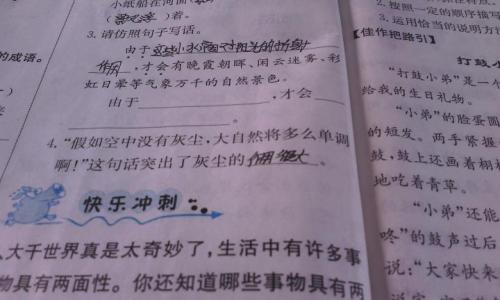 的成语。
小纸船在河面(
)着。
3. 请仿照句子写话。
由于这些小水滴对阳光的折射
作用,才会有晚霞朝晖、闲云迷雾、彩
虹日晕等气象万千的自然景色。
由于 ,才会
。
4. “假如空中没有灰尘,大自然将多么单调
啊!”这句话突出了灰尘的作用很大。
快乐冲刺
大千世界真是太奇妙了,生活中有许多事
物具有两面性。你还知道哪些事物具有两
2. 按照一定的顺序描写
3. 运用恰当的说明方
【佳作把路引】
打鼓小
“打鼓小弟”是一个
给我的生日礼物。
“小弟”的脸蛋圆
的短发。两手紧握
鼓,鼓上还画着栩栩
地吃着青草。
“小弟”还能
咚”的鼓声过后
说:“大家快来